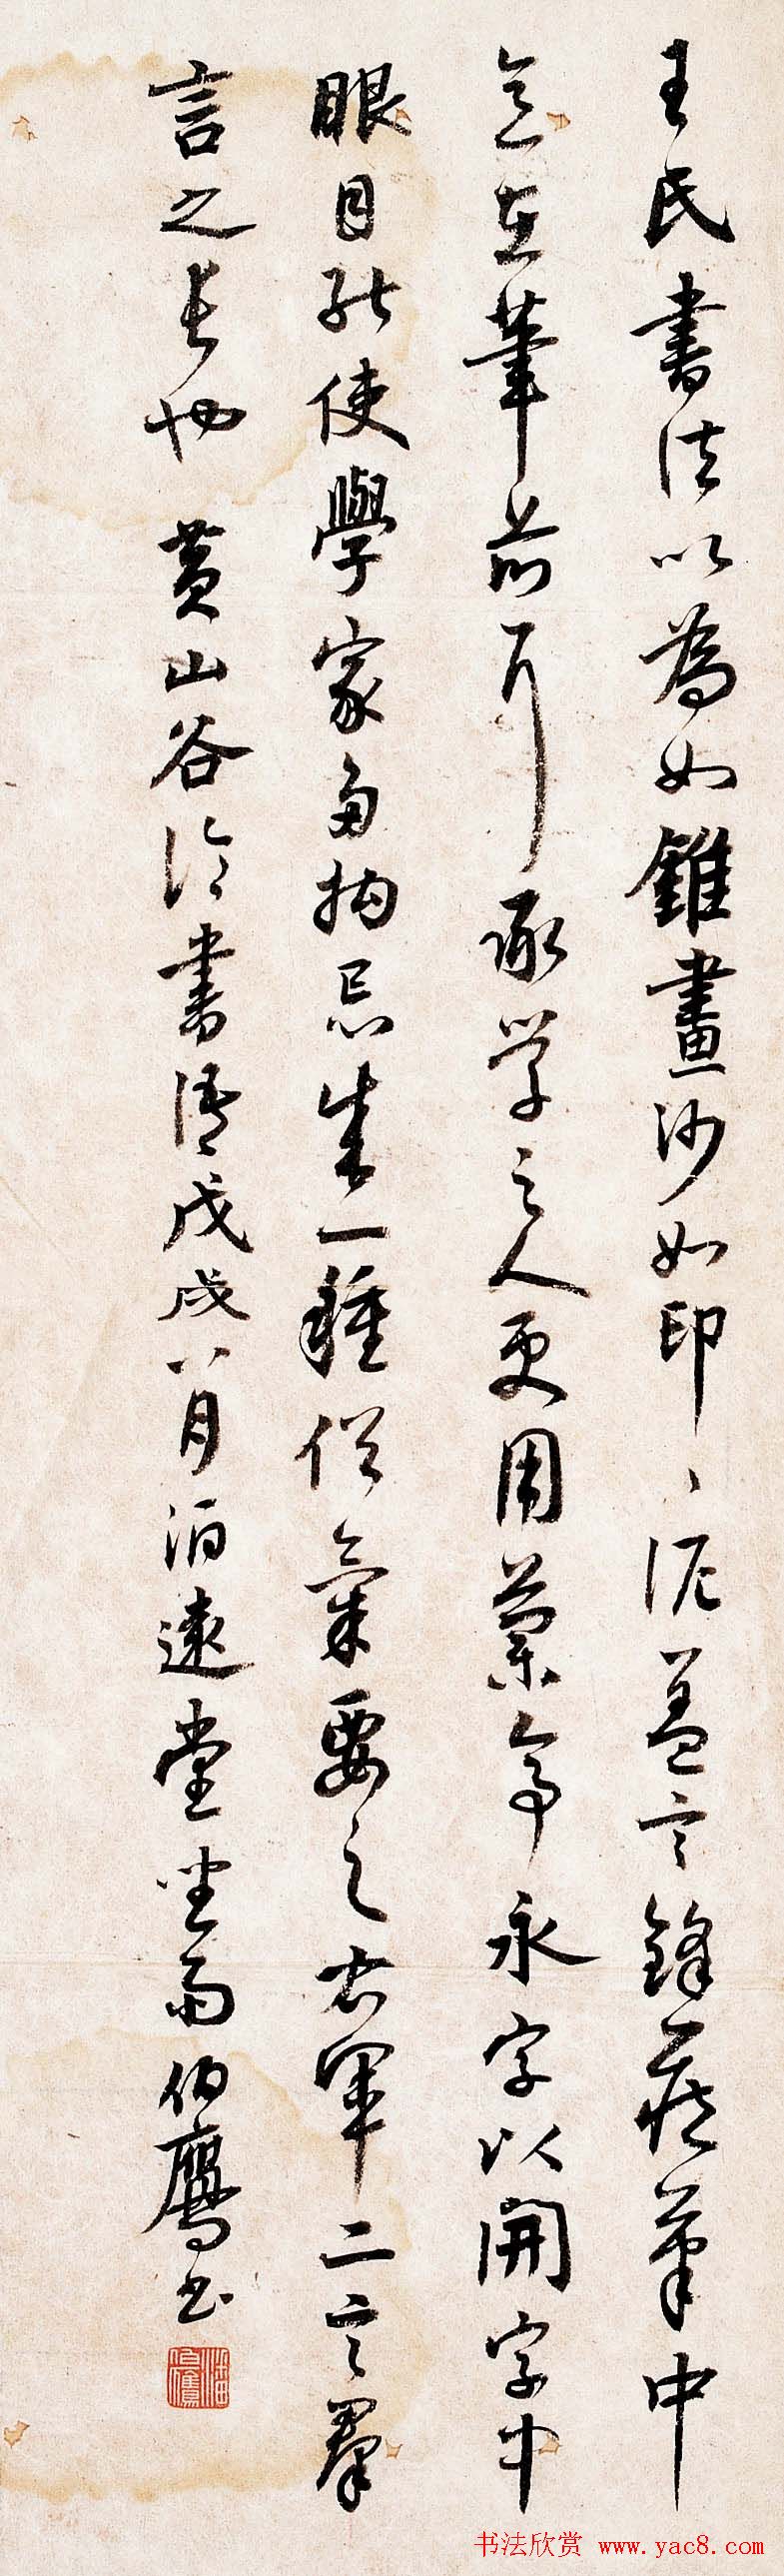 王氏書法以為如錐畫沙如印印泥蓋言鋒藏筆中
意在筆前耳承學之人更用蘭亭永字以開字中
眼目能使學家多拘忌生一種俗氣要之右軍二言群
言之長也 黄山谷論書語戊戌八月泊遠堂坐雨伯鷹書
潘伯鷹
书法欣赏 www.yac8.com